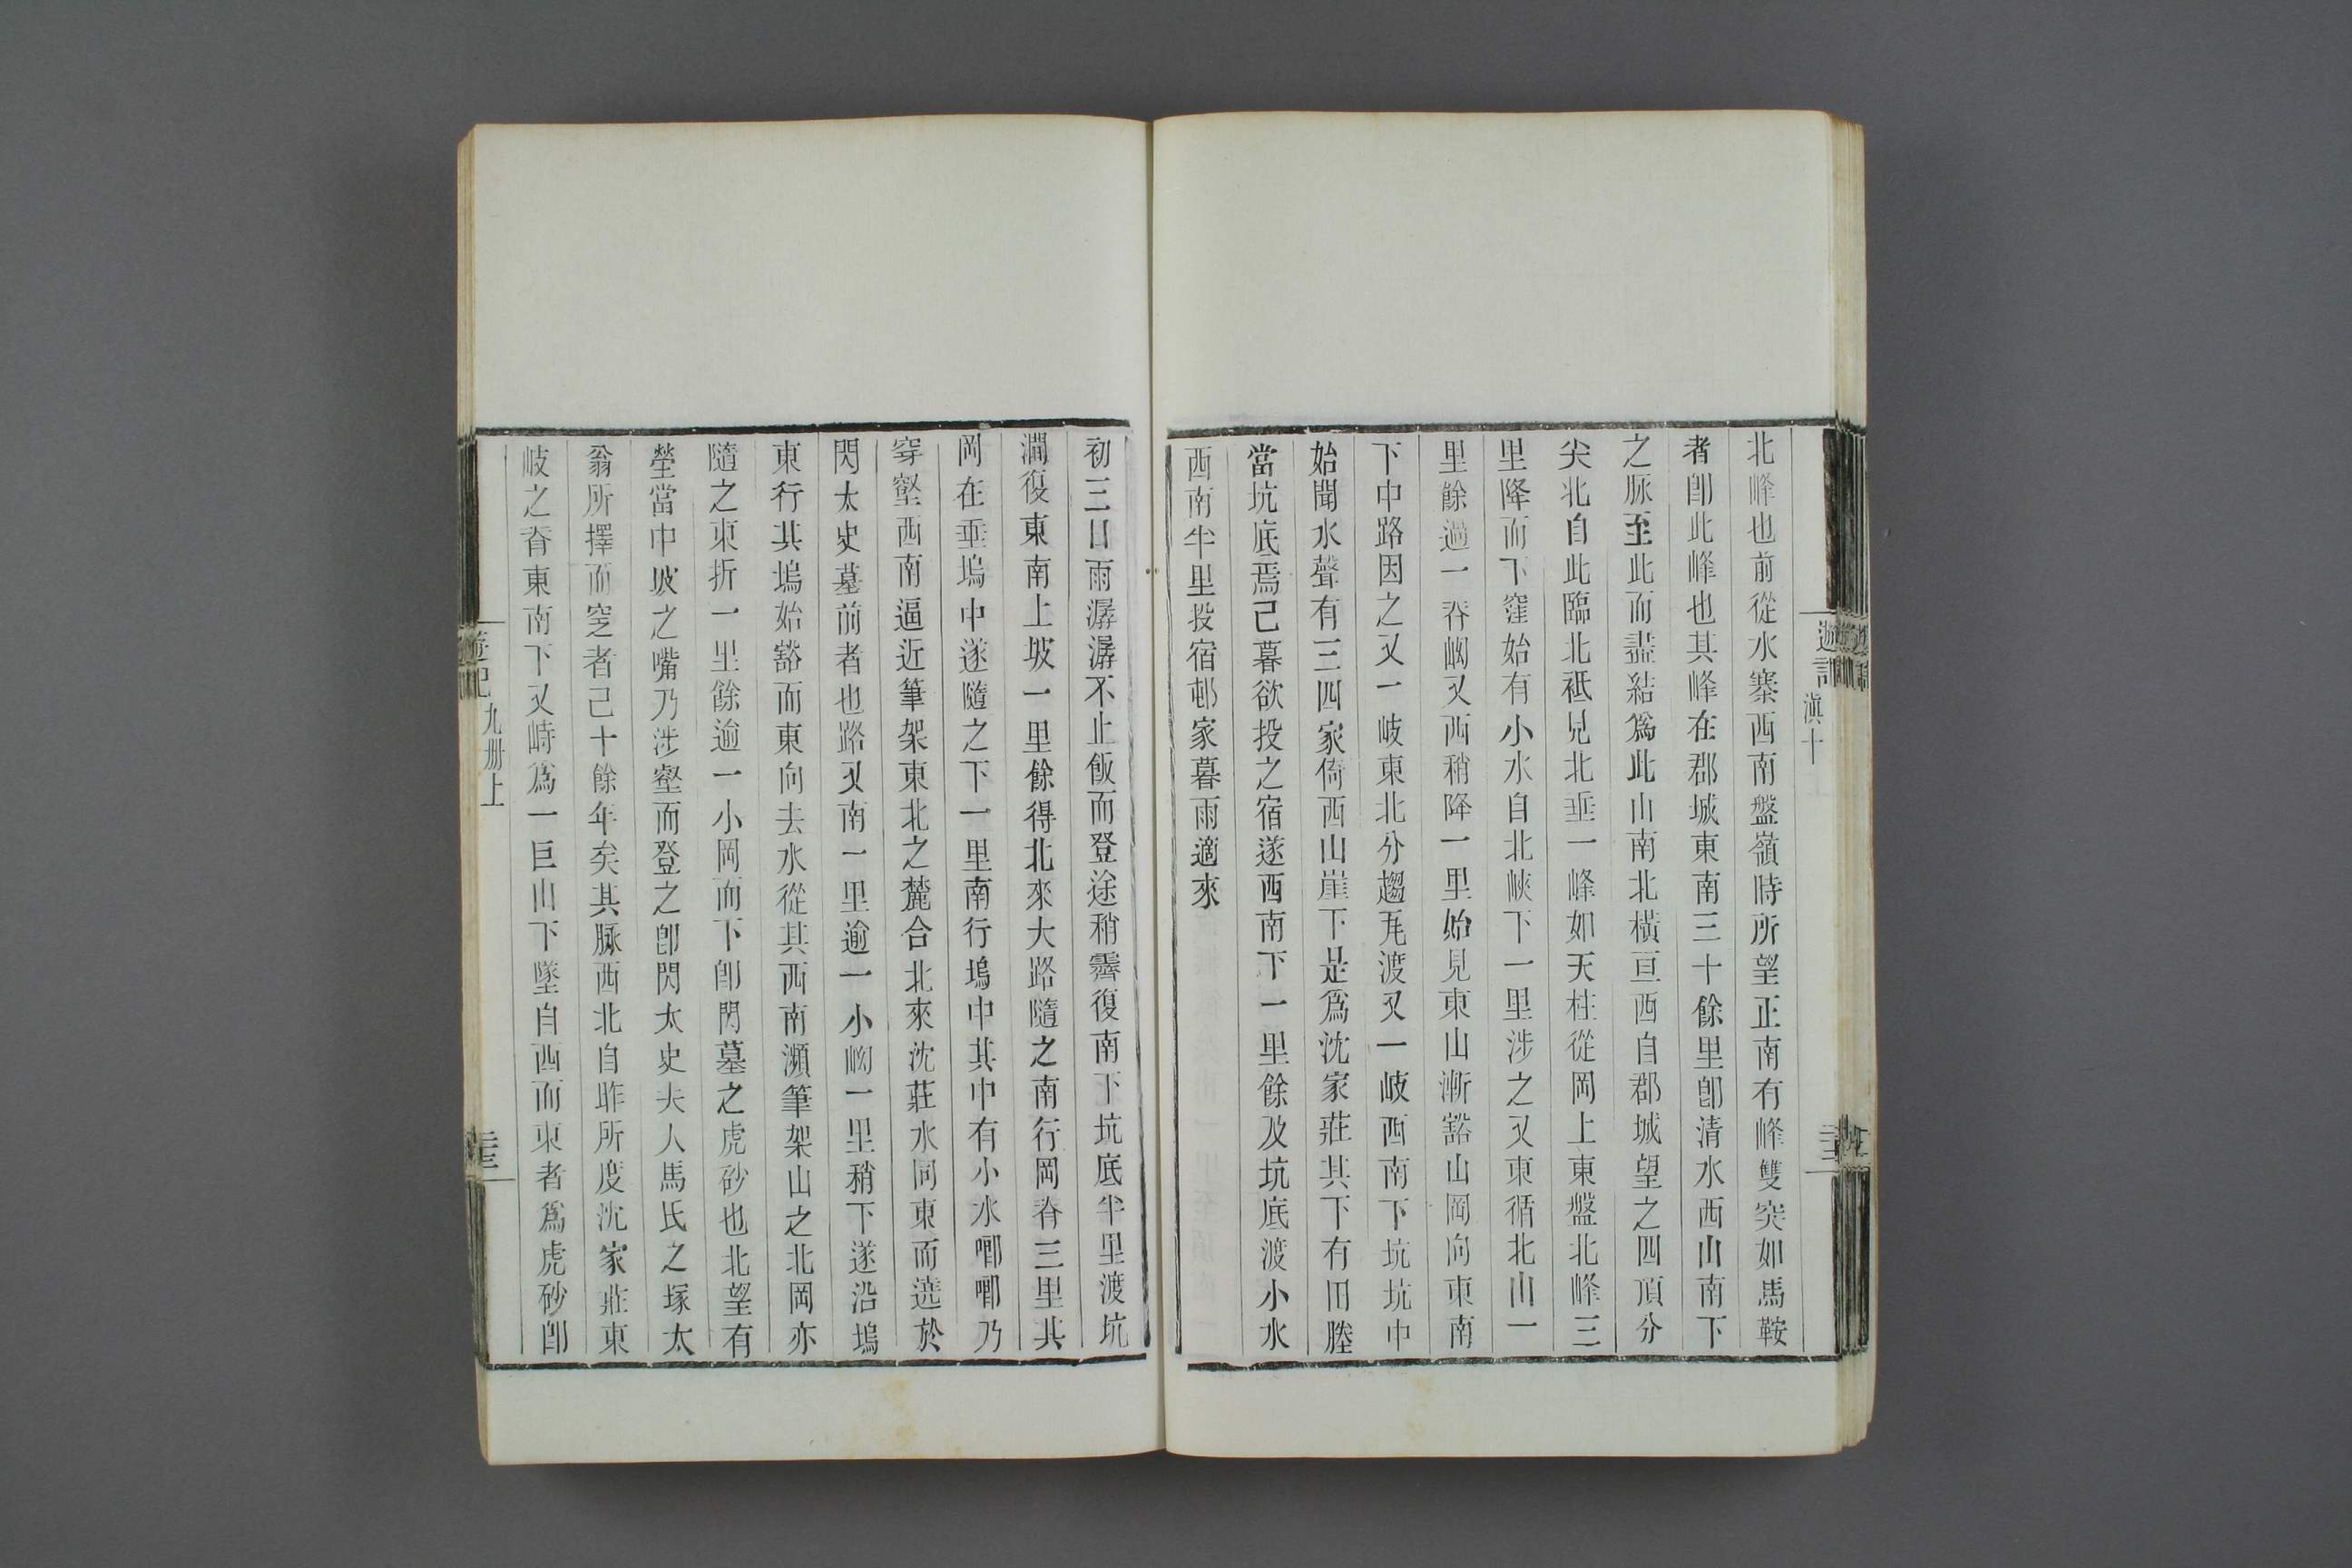 遊記
滇十
北峰也前從水寨西南盤嶺時所望正南有峰雙突如馬鞍
者卽此峰也其峰在郡城東南三十餘里卽清水西山南下
之脈至此而盡結爲此山南北橫亘西自郡城望之四頂分
尖北自此臨北祗見北垂一峰如天柱從岡上東盤北峰三
里降而下窪始有小水自北峽下一里涉之又東循北山一
里餘過一脊㘭又西稍降一里始見東山漸豁山岡向東南
下中路因之又一岐東北分趨瓦渡又一岐西南下坑坑中
始聞水聲有三四家倚西山崖下是爲沈家莊其下有田塍
當坑底焉已暮欲投之宿遂西南下一里餘及坑底渡小水
西南半里投宿邨家暮雨適來
初三日雨潺潺不止飯而登途稍霽復南下坑底半里渡坑
澗復東南上坡一里餘得北來大路隨之南行岡脊三里其
岡在垂塢中遂隨之下一里南行塢中其中有小水唧唧乃
穿壑西南逼近筆架東北之麓合北來沈莊水同東而遶於
閃太史墓前者也路又南一里逾一小㘭一里稍下遂沿塢
東行其塢始豁而東向去水從其西南瀕筆架山之北岡亦
隨之東折一里餘逾一小岡而下卽閃墓之虎砂也北望有
塋當中坡之嘴乃涉壑而登之卽閃太史夫人馬氏之塚太
翁所擇而窆者已十餘年矣其脈西北自昨所度沈家莊東
岐之脊東南下又峙爲一巨山下墜自西而東者爲虎砂卽
遊記
九册上